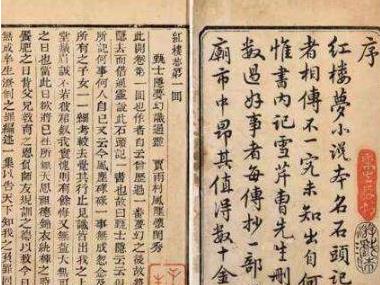 序
紅樓夢小說本名石頭記
者相傳不一究未知出自何
惟書内記雪芹曹先生刪
數過好事者每傳抄一部
廟市中昂其值得數十金
紅樓夢第一回
甄士隱夢幻識通靈 賈雨村風塵懷閨秀
此開卷第一回也作者自云曾歷過一番夢幻之後故將
隱去而借通靈說此石頭記一書也故曰甄士隱云云
所記何事何人自己又云今風塵碌碌一事無成忽念
所有之子女一一細考較去覺其行止見識皆出我之
堂鬚眉誠不若彼裙釵我實愧則有餘悔又無益大無
之日也當此日欲將已往所賴天恩祖德錦衣紈褲之時
饜肥之日背父兄教育之恩負師友規訓之德以致今
無成半生潦倒之罪編述一集以告天下知我之負罪固